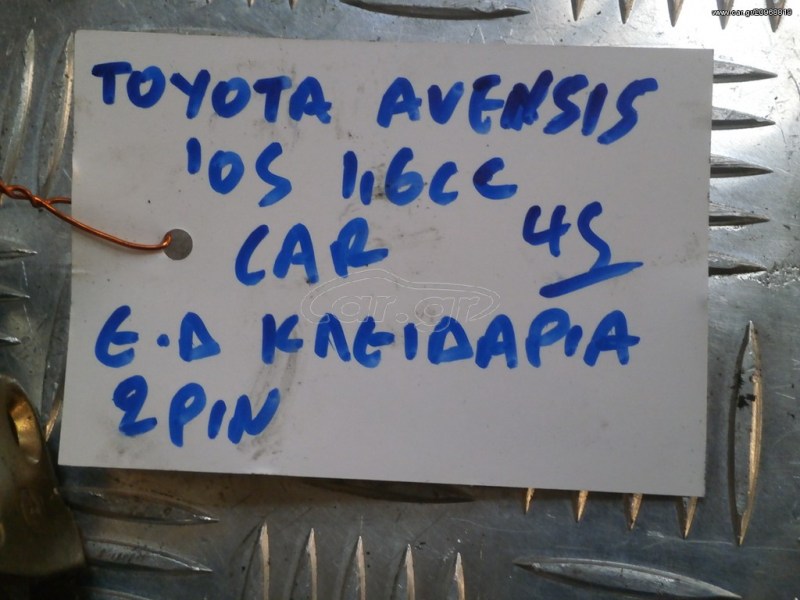 www.car.gr/20969819
TOYOTA AVENSIS
'05 1,6CC
CAR 45
car.gr
Ε.Δ ΚΛΕΙΔΑΡΙΑ
2PIN